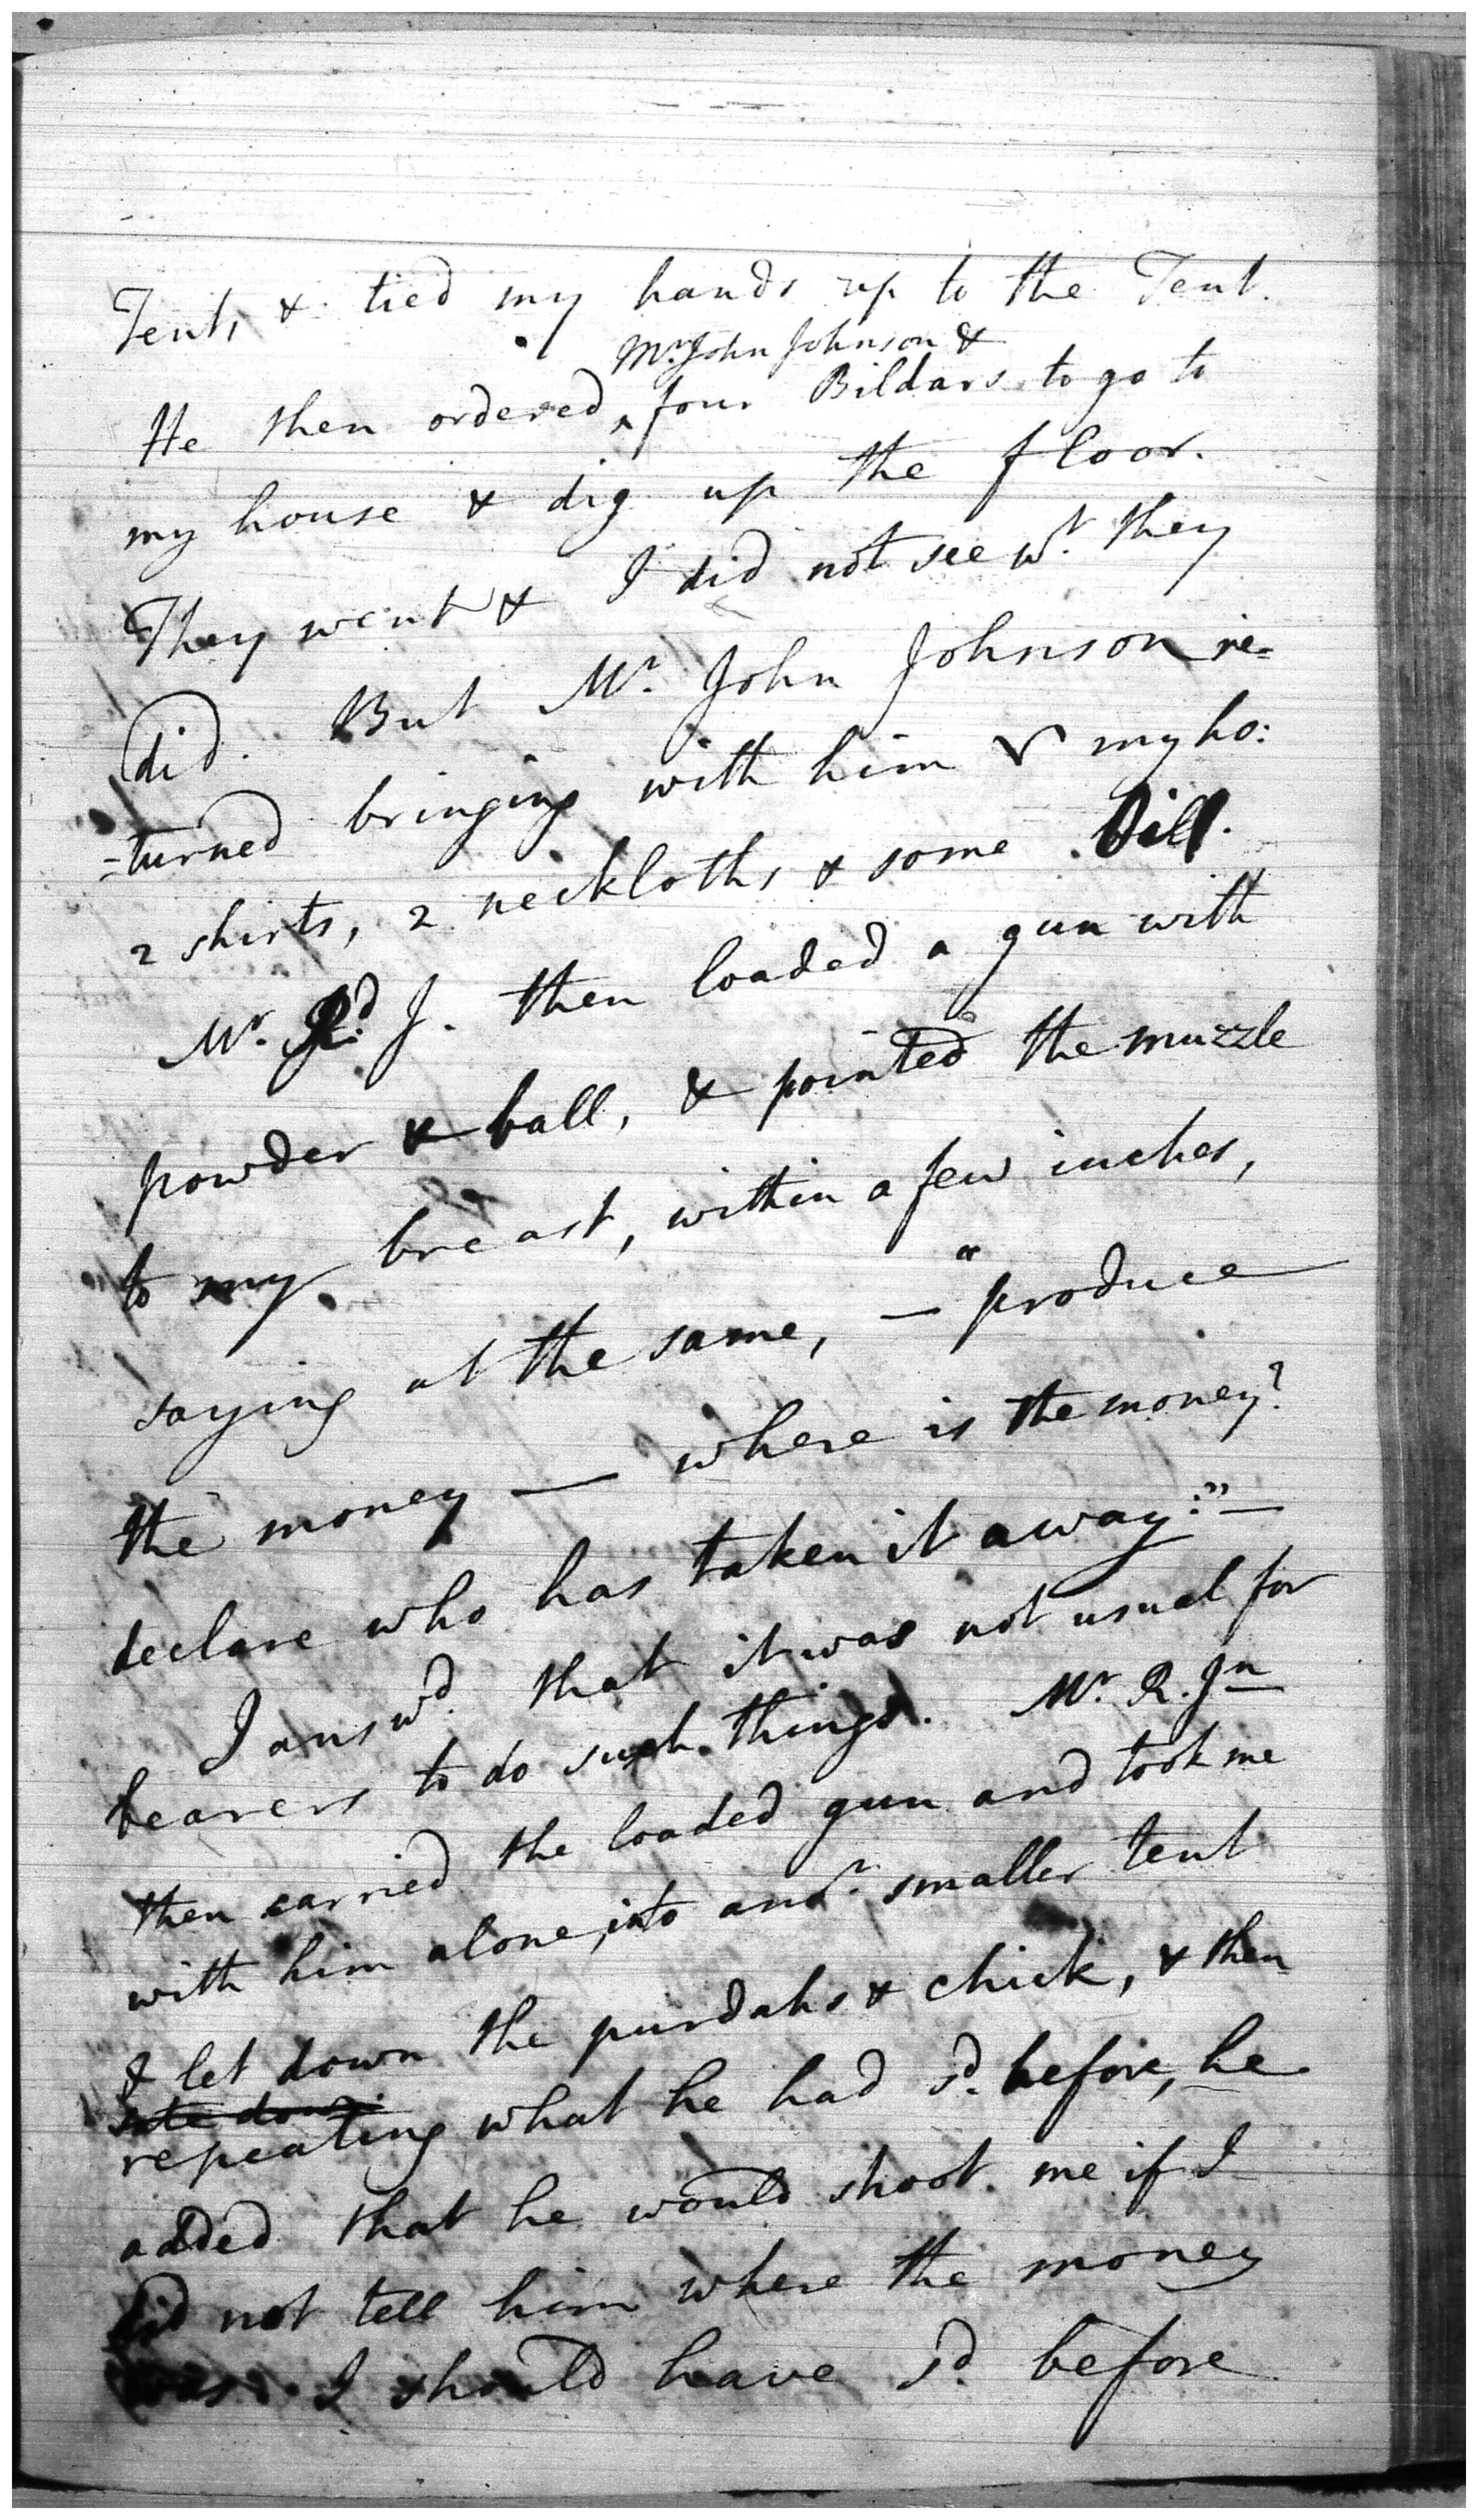 Tent, & tied my hands up to the Tent.
Mr. John Johnson &
He then ordered ^ four Bildars to go to
my house & dig up the floor.
They went & I did not see wt. they
did. But Mr. John Johnson re=
=turned bringing with him my ho:
2 shirts, 2 neckloths & some
Mr. Rd. J. then loaded a gun with
powder & ball, & pointed the muzzle
to my breast, within a few inches,
saying at the same, — "produce
the money — where is the money?
declare who has taken it away:" —
I answd. that it was not usual for
bearers to do such things. Mr. R. Jn
then carried the loaded gun and took me
with him alone, into anor. smaller tent
& let down the purdahs & chick, & then
sate down
repeating what he had sd. before, he
added that he would shoot me if I
did not tell him where the money
was. I should have sd. before